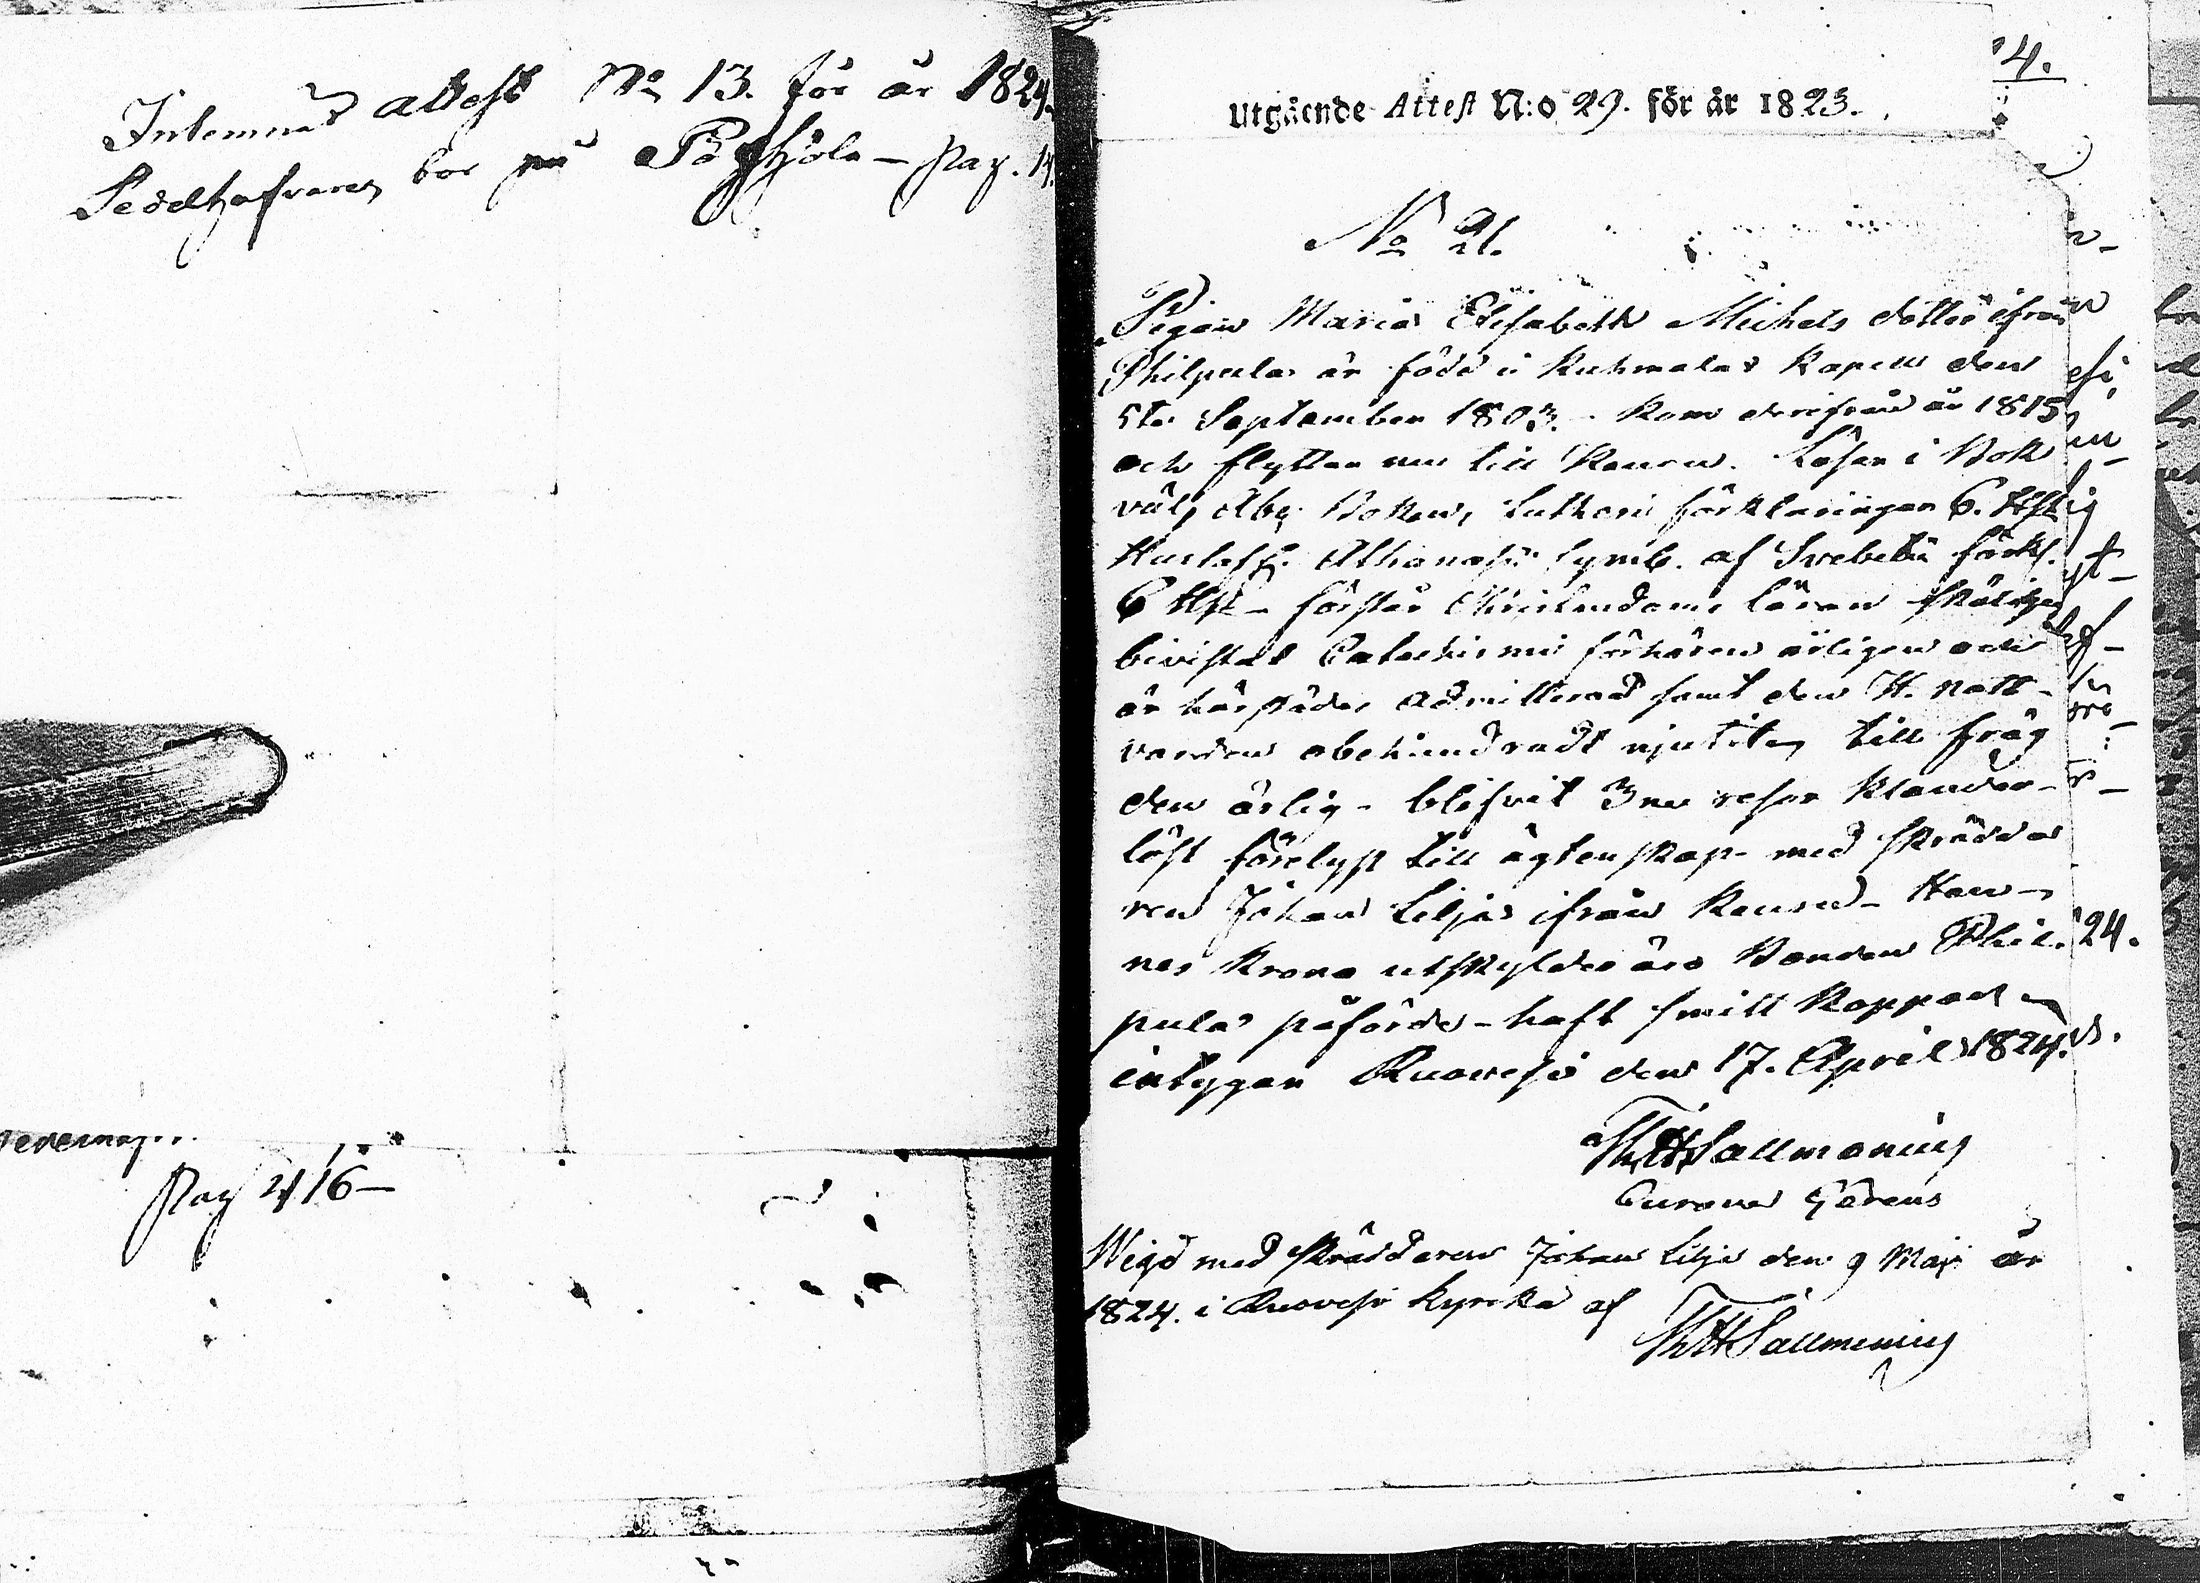 Inlemnad attest No 13. för år 1824.
Sedelhafvaren bor på Pohjola - Pag. 14.
Pag 416 -
4.
Utgående Attest N:o 29. för år 1823.
No 21.
Pigan Maria Elisabeth Michels dotter ifrån
Philpula är född i Kuhmalax Kapell den
5te September 1803. Kom derifrån år 1815
och flyttar nu till Keuru. Läser i Bok
väl, Abc Boken, Lutheri förklaringar 6. Hst
Hustafl. Athanasii Symb. af Svebelii förkl.
6 Hst - förstår Christendoms läran skäligen
bivistat Catechismi förhören årligen och
är härstädes admitterad samt den H. natt-
varden obehindradt njutit, till fräg
den ärlig - blifvit 3ne resor klander-
löst förelyst till ägtenskap med skrädda
ren Johan Lilja ifrån Keuru - Hen-
nes Krono utskylder äro Bonden Phil-
pula påförde - haft smitt Koppor
intygar Ruovesi den 17. April 1824.
Th H Sallmenius
Curam Gerens
Wigd med Skräddaren Johan Lilja den 9 Maji år
1824. i Ruovesi kyrcka af
Th H Sallmenius
24.